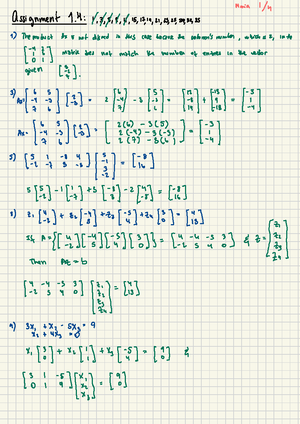 Assignment 1.4: 1, 3, 5, 8, 9, 13, 17, 19, 21, 23, 29, 30, 32, 35
Main 1/4
1) The product Ax is not defined in this case because the column's number, which is 2, in the
[-4 2; 1 6; 0 1] matrix does not match the number of entries in the vector
given [3; -2; 7].
3) Ax= [6 5; -4 -3; 7 6] [2; -3] = 2 [6; -4; 7] - 3 [5; -3; 6] = [12; -8; 14] + [-15; 9; -18] = [-3; 1; -4]
Ax= [6 5; -4 -3; 7 6] [2; -3] = [2(6) - 3(5); 2(-4) - 3(-3); 2(7) - 3(6)] = [-3; 1; -4]
5) [5 1 -8 4; -2 -7 3 -5] [5; -1; 3; -2] = [-8; 16]
5 [5; -2] - 1 [1; -7] + 3 [-8; 3] - 2 [4; -5] = [-8; 16]
8) z₁ [4; -2] + z₂ [-4; 5] + z₃ [-5; 4] + z₄ [3; 0] = [4; 13]
If A = {[4; -2] [-4; 5] [-5; 4] [3; 0]} = [4 -4 -5 3; -2 5 4 0] & z = [z₁; z₂; z₃; z₄]
Then Az = b
[4 -4 -5 3; -2 5 4 0] [z₁; z₂; z₃; z₄] = [4; 13]
9) 3x₁ + x₂ - 5x₃ = 9
x₂ + 4x₃ = 0
x₁ [3; 0] + x₂ [1; 1] + x₃ [-5; 4] = [9; 0] &
[3 1 -5; 0 1 4] [x₁; x₂; x₃] = [9; 0]